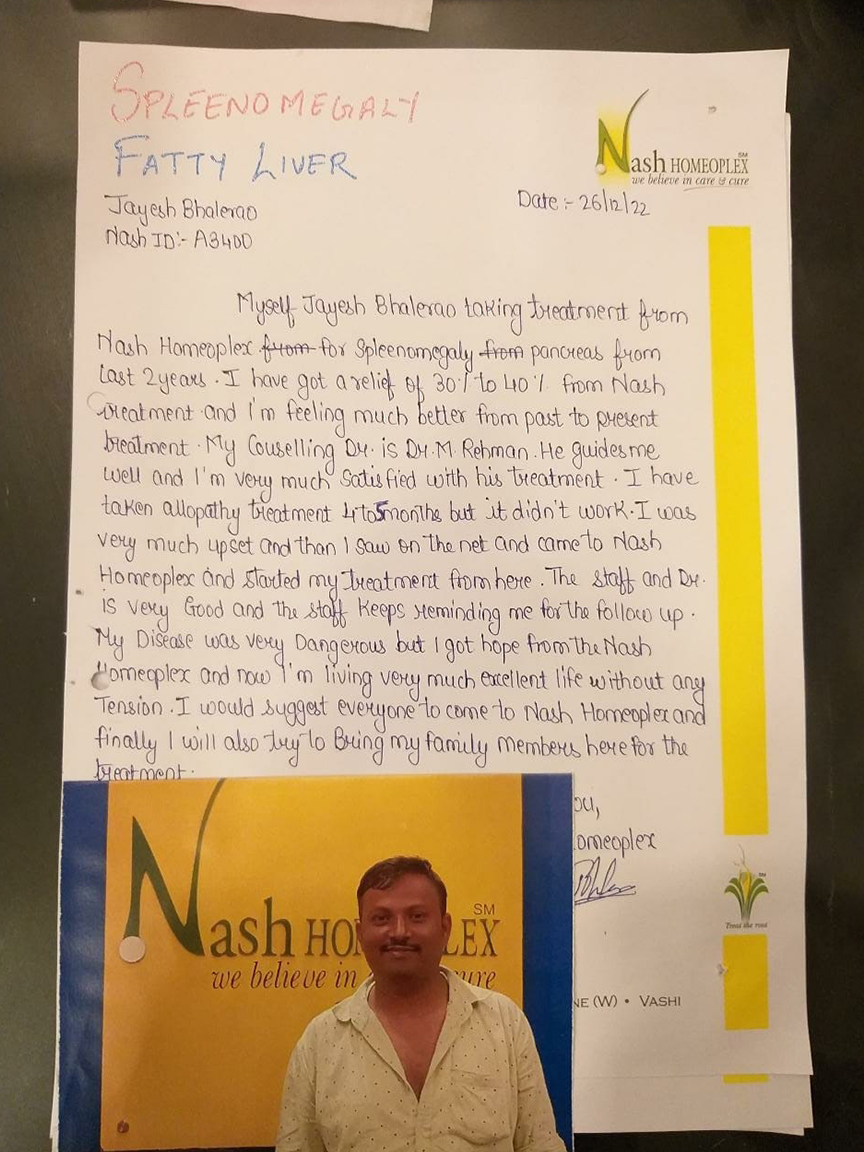 SPLEENOMEGALY
FATTY LIVER
Nash HOMEOPLEX SM
we believe in care & cure
Jayesh Bhalerao
Date :- 26/12/22
Nash ID:- A3400
Myself Jayesh Bhalerao taking treatment from
Nash Homeoplex from for Spleenomegaly from pancreas from
Last 2years. I have got a relief of 30% to 40% from Nash
treatment and I'm feeling much better from past to present
treatment. My Couselling Dr. is Dr. M. Rehman. He guides me
well and I'm very much satisfied with his treatment. I have
taken allopathy treatment 4to5months but it didn't work. I was
very much upset and than I saw on the net and came to Nash
Homeoplex and started my treatment from here. The staff and Dr.
is very Good and the staff keeps reminding me for the follow up.
My Disease was very Dangerous but I got hope from the Nash
Homeoplex and now I'm living very much excellent life without any
Tension. I would suggest everyone to come to Nash Homeoplex and
finally I will also try to Bring my family members here for the
treatment.
ou,
omeoplex
Treat the root
NE (W) • VASHI
Nash HO PLEX SM
we believe in cure